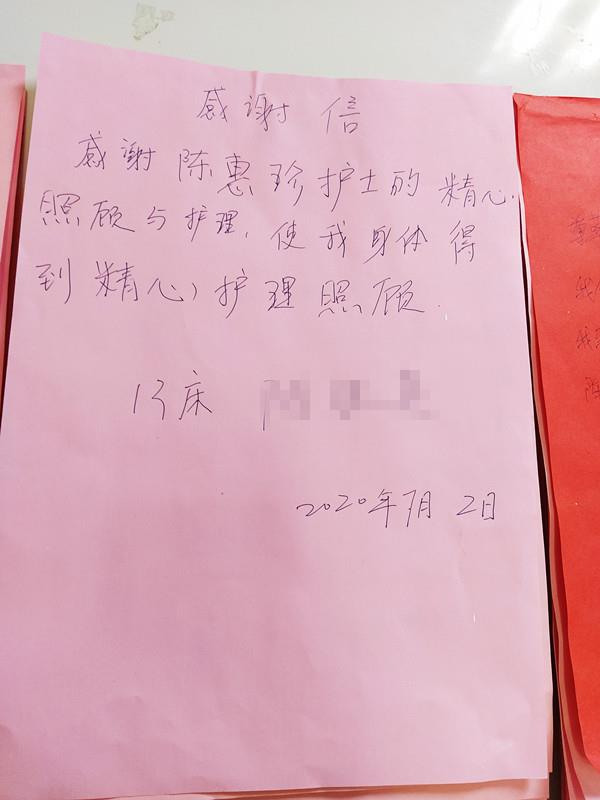 感谢信
感谢陈惠珍护士的精心
照顾与护理，使我身体得
到精心护理照顾.
13床
2020年7月2日